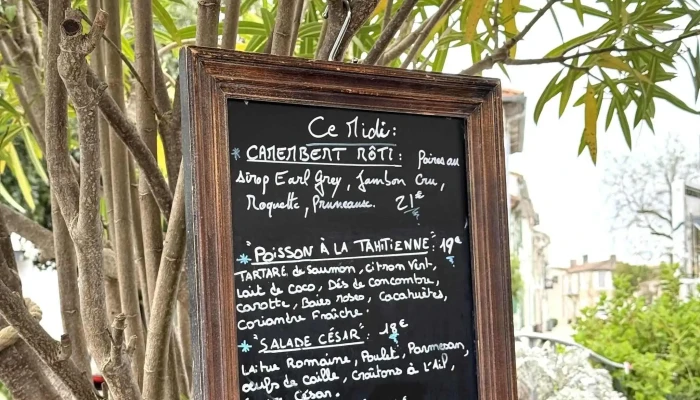 Ce Midi:
* CAMEMBERT RÔTI: Poires au
sirop Earl Grey, Jambon Cru,
Roquette, Pruneaux. 21€
"POISSON À LA TAHITIENNE": 19€
* TARTARE de Saumon, citron Vert,
Lait de coco, Dés de Concombre,
carotte, Baies roses, Cacahuètes,
Coriandre Fraîche.
"SALADE CÉSAR": 18€
* Laitue Romaine, Poulet, Parmesan,
oeufs de caille, Croûtons à l'Ail,
César.